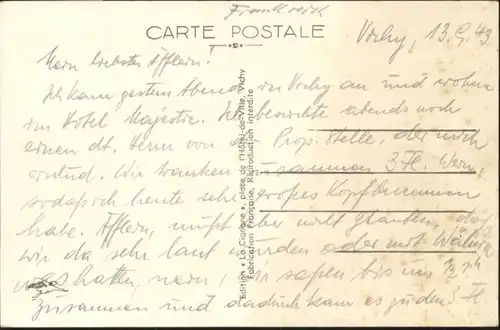 Frankreich
CARTE POSTALE
Vichy, 13.9.43
Mein liebstes Äfflein!
Ich kam gestern Abend in Vichy an und wohne
im Hotel Majestic. Ich besuchte abends noch
einen dt. Herrn von der Prop. Stelle, der mich
einlud. Wir tranken zusammen 3 Fl. Wein,
sodaß ich heute sehr großes Kopfbrummen
habe. Äfflein, mußt aber nicht glauben, daß
wir da sehr laut wurden oder mit Weibern
hatten, nein, wir saßen bis um
zusammen und dadurch kam es zu den 3 Fl.
Editions « La Cigogne », place de l'Hôtel-de-Ville, Vichy
Fabrication Française, Reproduction interdite